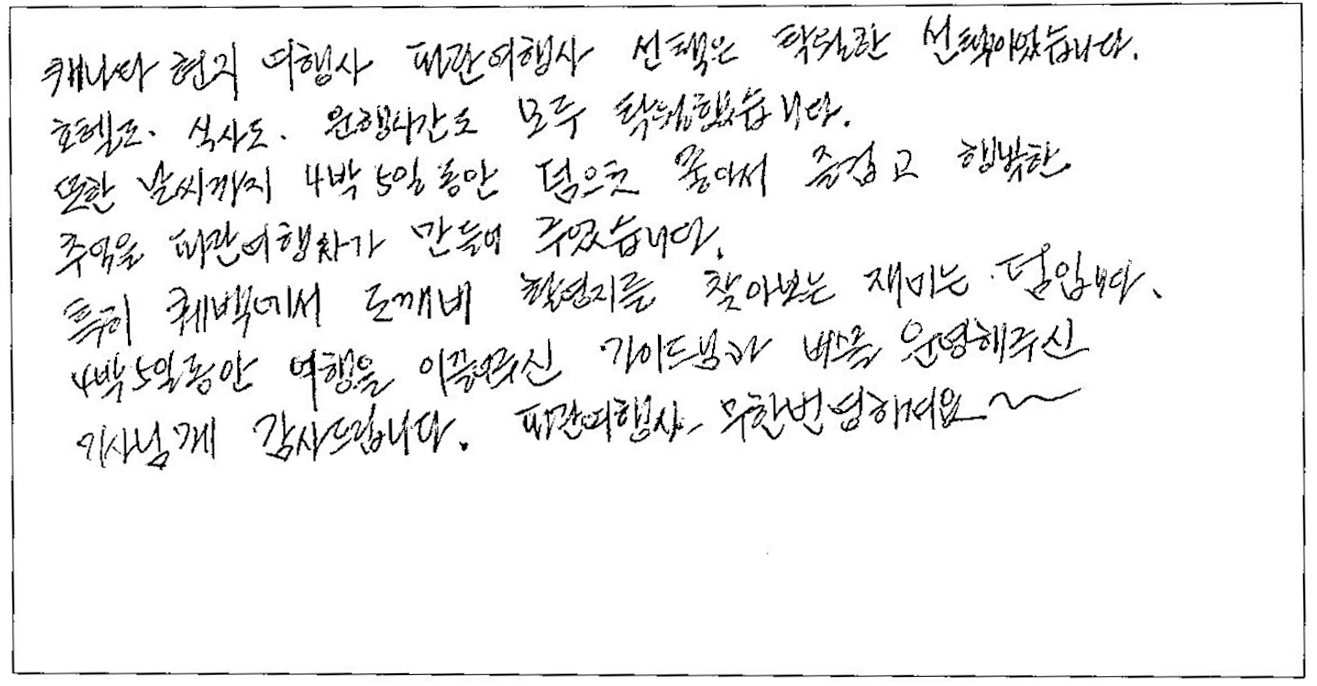 캐나다 현지 여행사 파란여행사 선택은 탁월한 선택이었습니다.
호텔도. 식사도. 운행시간도 모두 탁월했습니다.
또한 날씨까지 4박5일동안 덤으로 좋아서 즐겁고 행복한
추억을 파란여행사가 만들어 주었습니다.
특히 퀘백에서 도깨비 촬영지를 찾아보는 재미는 덤입니다.
4박5일동안 여행을 이끌어주신 가이드님과 버스를 운영해주신
기사님께 감사드립니다. 파란여행사 무한번영하세요~~